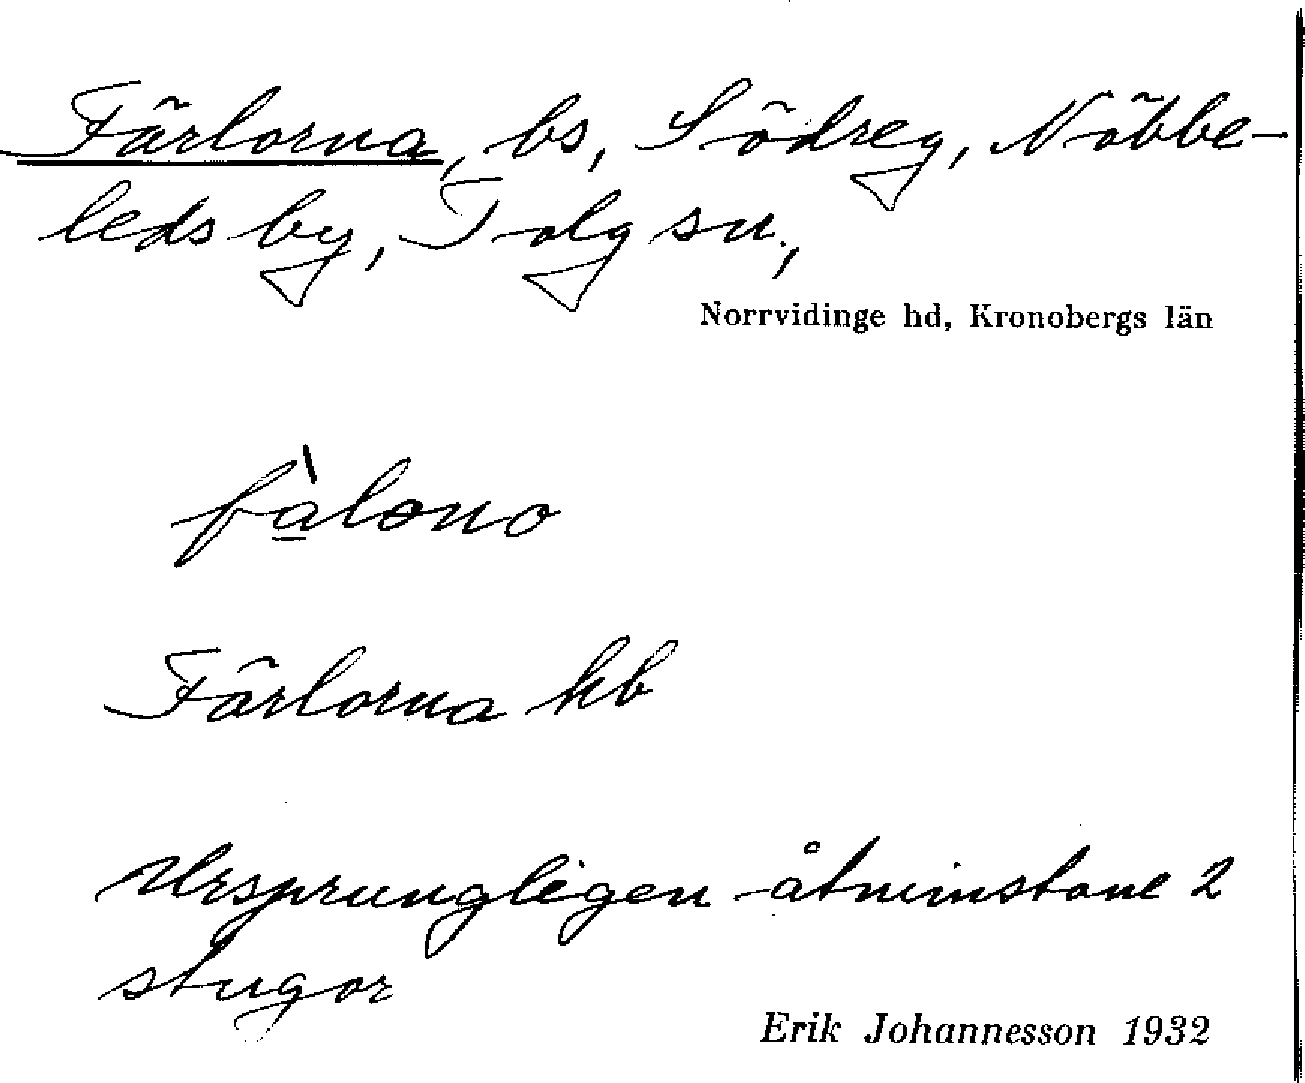 Färlorna, bs, Södreg, Nöbbe-
leds by, Tolg sn.,
Norrvidinge hd, Kronobergs län
fàlono
Färlorna hb
Ursprungligen åtminstone 2
stugor
Erik Johannesson 1932